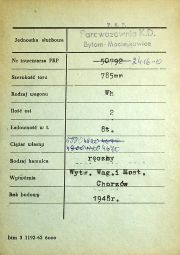 P.K.P.
Jednostka służbowa
Parowozownia K.D.
Bytom-Maciejkowice
Nr inwentarza PKP 50792 2416-0
Szerokość toru 785mm
Rodzaj wagonu Wh
Ilość osi 2
Ładowność w t. 8t.
Ciężar własny
Rodzaj hamulca ręczny
Wytwórnia Wytw. Wag. i Most.
Chorzów
Rok budowy 1948r.